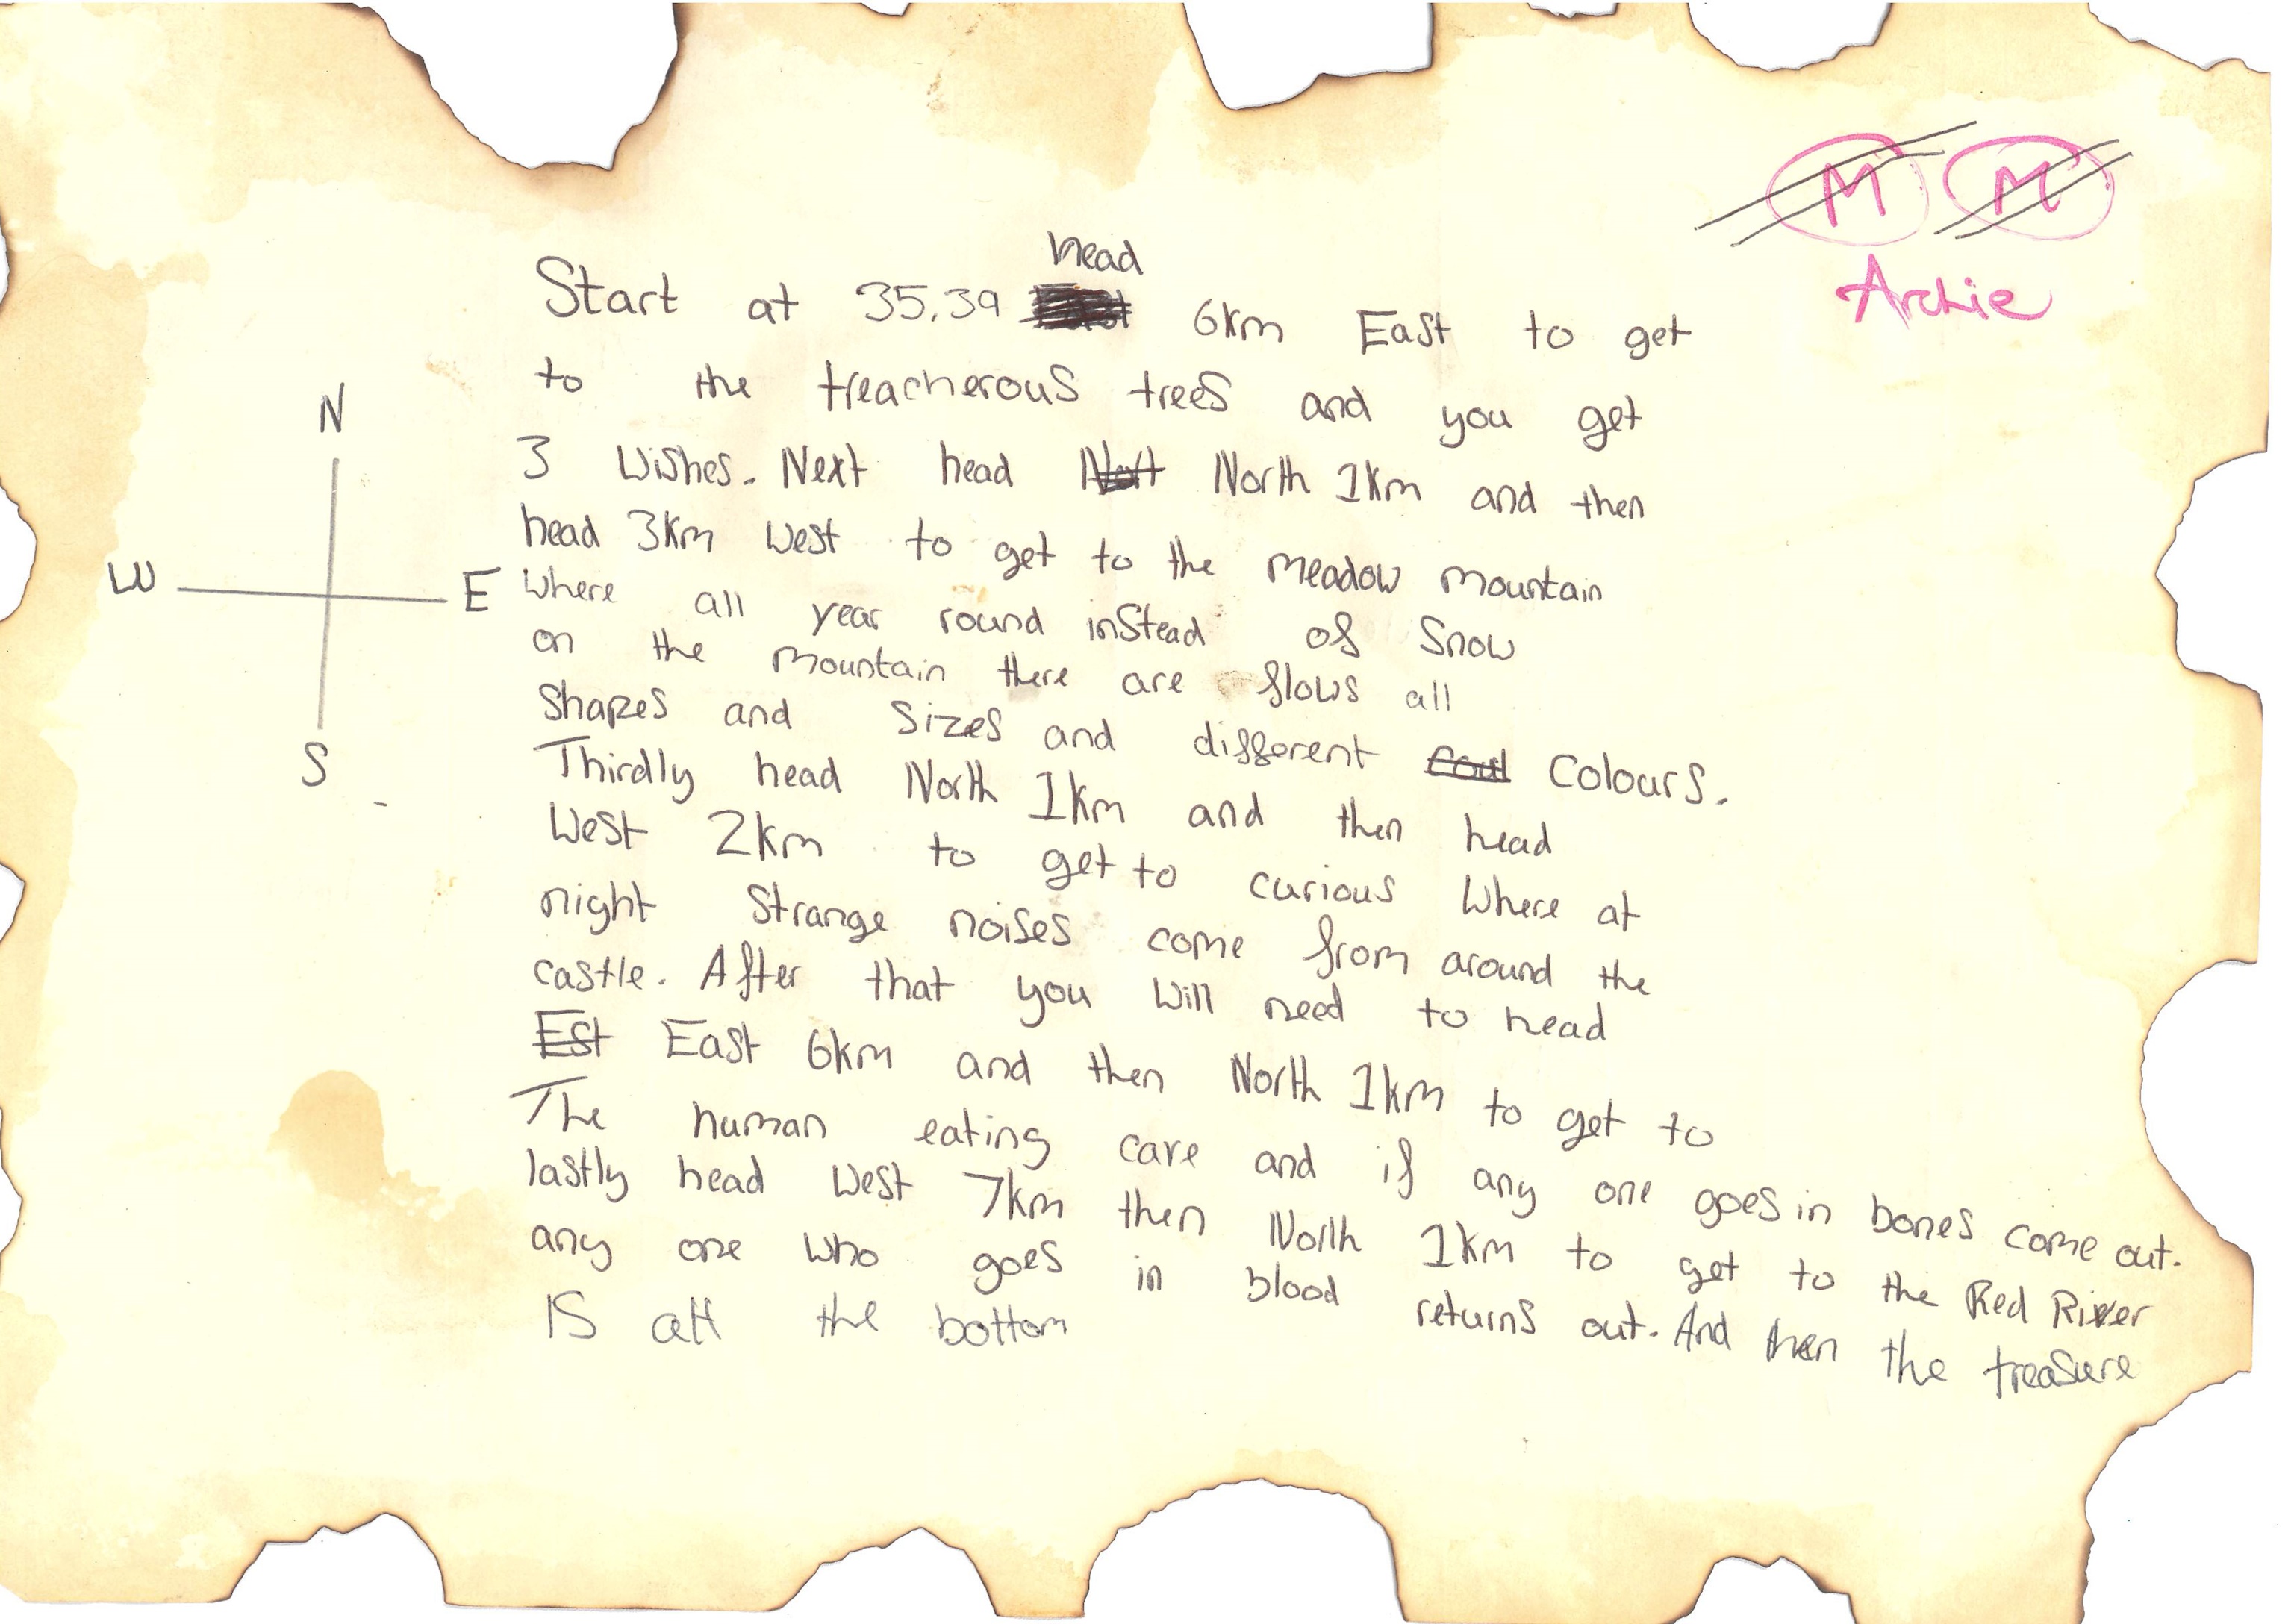 M M
Archie
head
Start at 35,39 6km East to get
to the treacherous trees and you get
3 Wishes. Next head North 1km and then
head 3km West to get to the meadow mountain
Where all year round instead of Snow
on the mountain there are flows all
Shapes and Sizes and different Colours.
Thirdly head North 1km and then head
West 2km to get to curious Where at
night Strange noises come from around the
castle. After that you Will need to head
Est East 6km and then North 1km to get to
The human eating cave and if any one goes in bones come out.
lastly head West 7km then North 1km to get to the Red River
any one who goes in blood returns out. And then the treasure
IS att the bottom
N
W E
S